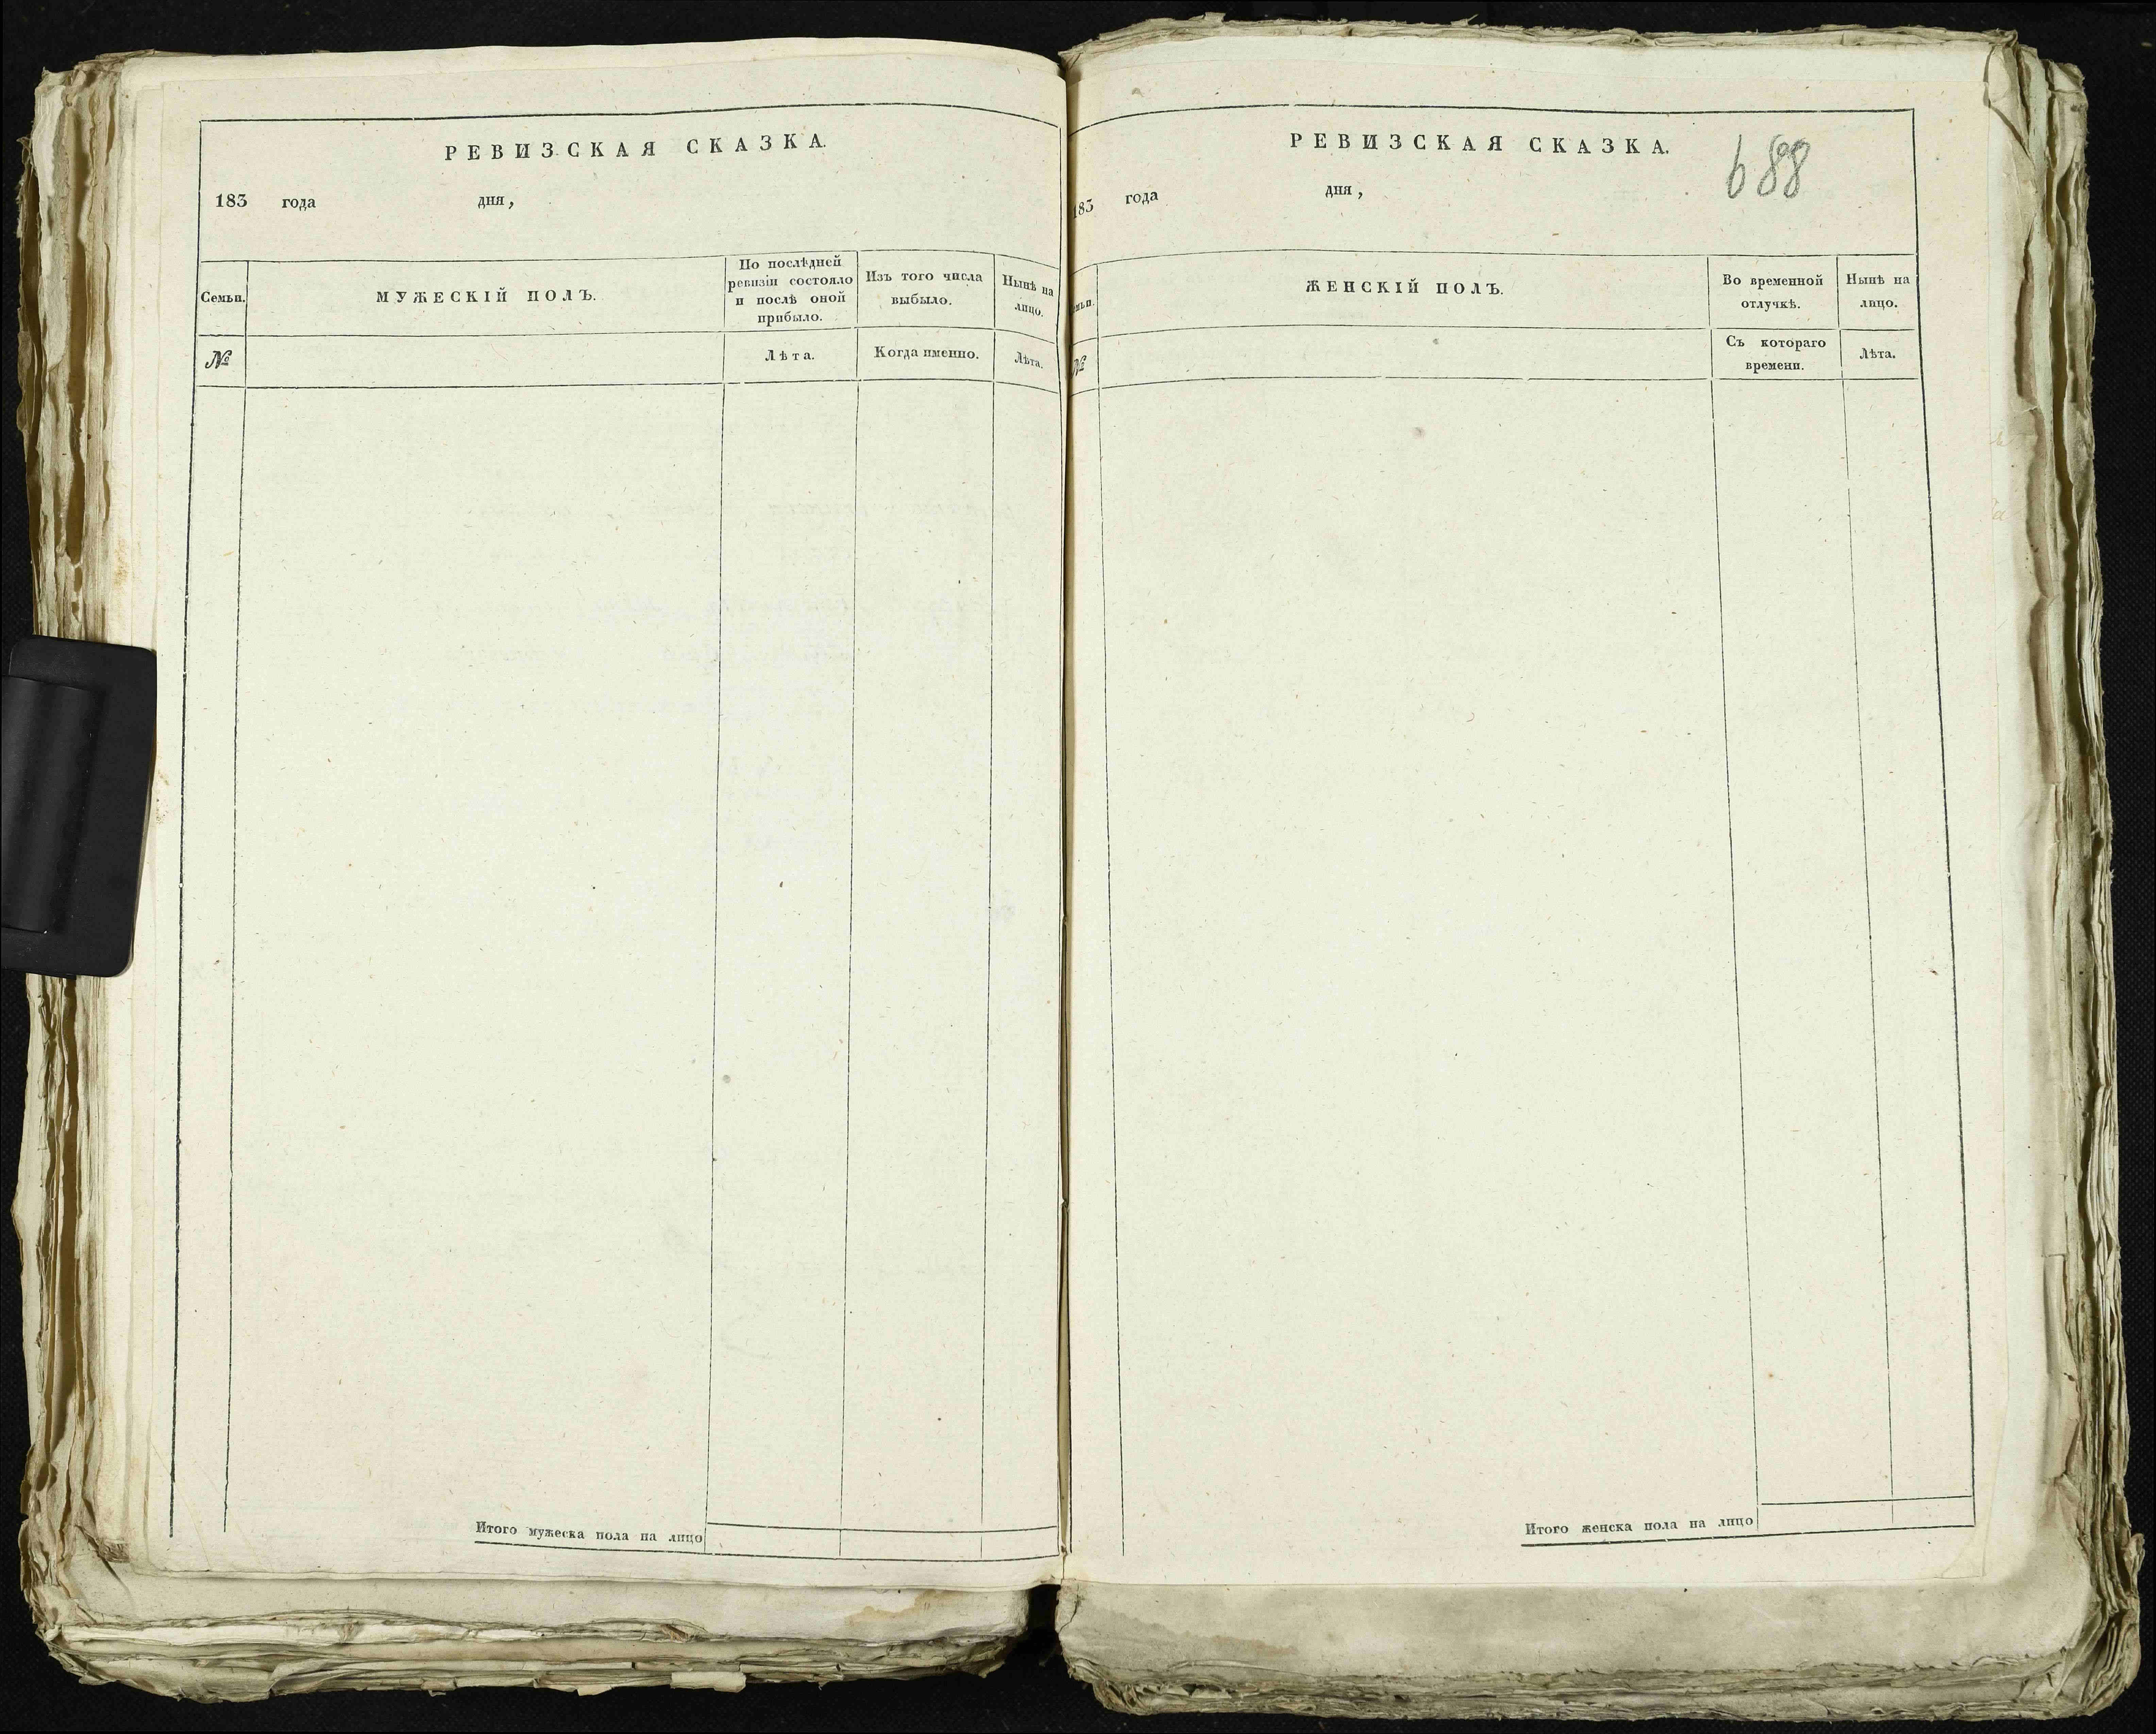 РЕВИЗСКАЯ СКАЗКА.
183 года дня,
Семьи.
МУЖЕСКІЙ ПОЛЪ.
По послѣдней
ревизіи состояло
и послѣ оной
прибыло.
Изъ того числа
выбыло.
Нынѣ на
лицо.
№
Лѣта.
Когда именно.
Лѣта.
Итого мужеска пола на лицо
РЕВИЗСКАЯ СКАЗКА.
688
183 года дня,
Семьи.
ЖЕНСКІЙ ПОЛЪ.
Во временной
отлучкѣ.
Нынѣ на
лицо.
№
Съ котораго
времени.
Лѣта.
Итого женска пола на лицо